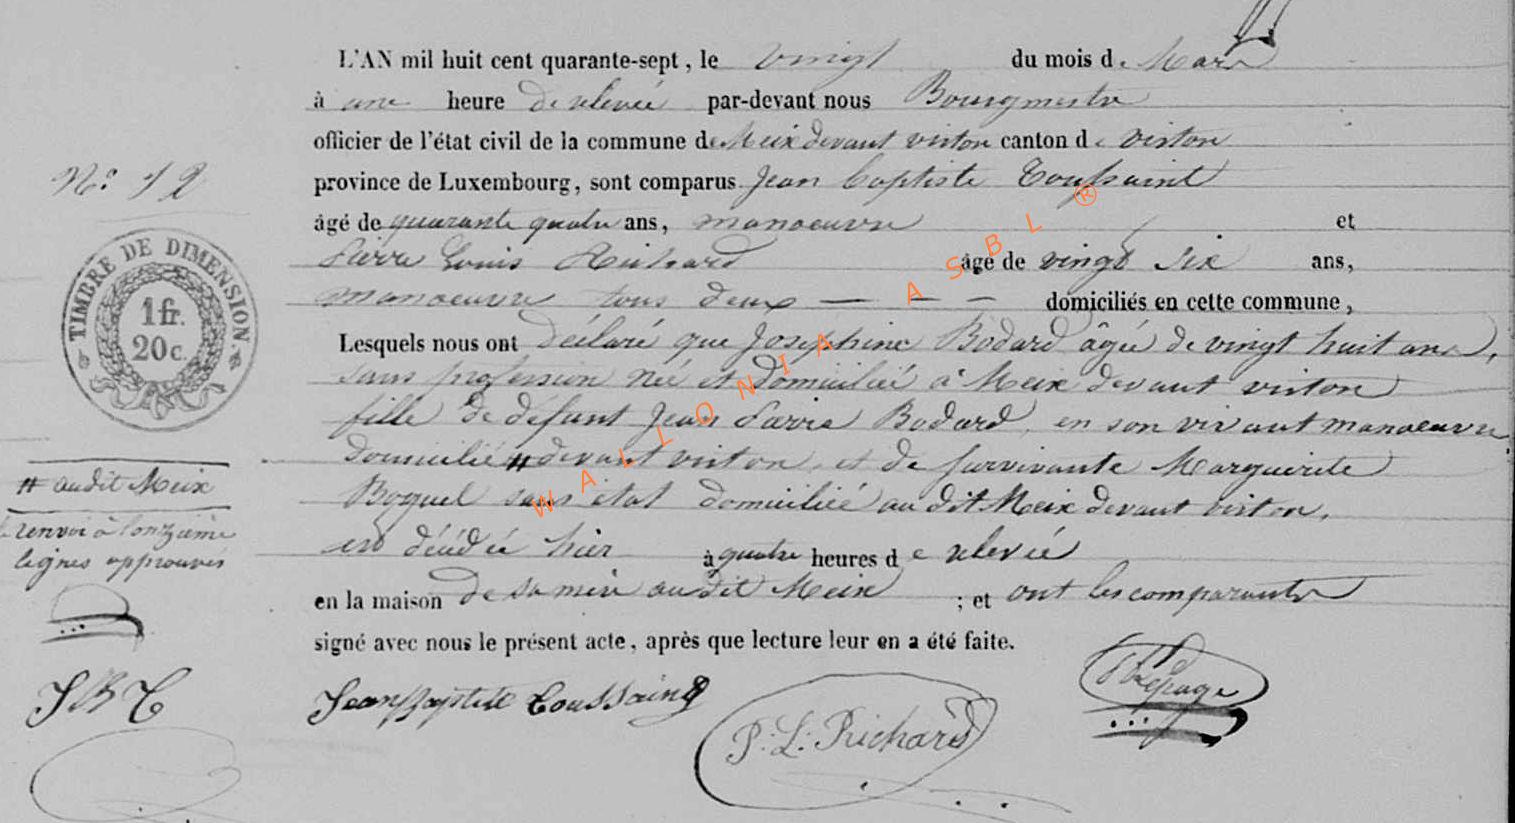 L'AN mil huit cent quarante-sept, le vingt du mois de Mars
à une heure de relevée par-devant nous Bourgmestre
officier de l'état civil de la commune de Meix devant virton canton de virton
N° 12
province de Luxembourg, sont comparus Jean Baptiste Toussaint
âgé de quarante quatre ans, manoeuvre et
Pierre Louis Richard âgé de vingt six ans,
manoeuvre tous deux — — — domiciliés en cette commune,
TIMBRE DE DIMENSION
1 fr.
20 c.
Lesquels nous ont déclaré que Josephine Bodard âgée de vingt huit ans,
sans profession née et domiciliée à Meix devant virton
fille de défunt Jean Pierre Bodard, en son vivant manoeuvre
domicilié # devant virton, et de survivante Marguerite
# audit Meix
Boquel sans état domiciliée au dit Meix devant virton,
renvoi à l'onzième
lignes approuvés
est décédée hier à quatre heures de relevée
en la maison de sa mère au dit Meix ; et ont les comparants
signé avec nous le présent acte, après que lecture leur en a été faite.
JBT
Jean Baptiste Toussaint
P. L. Richard
Lepage
WALLONIA ASBL ®